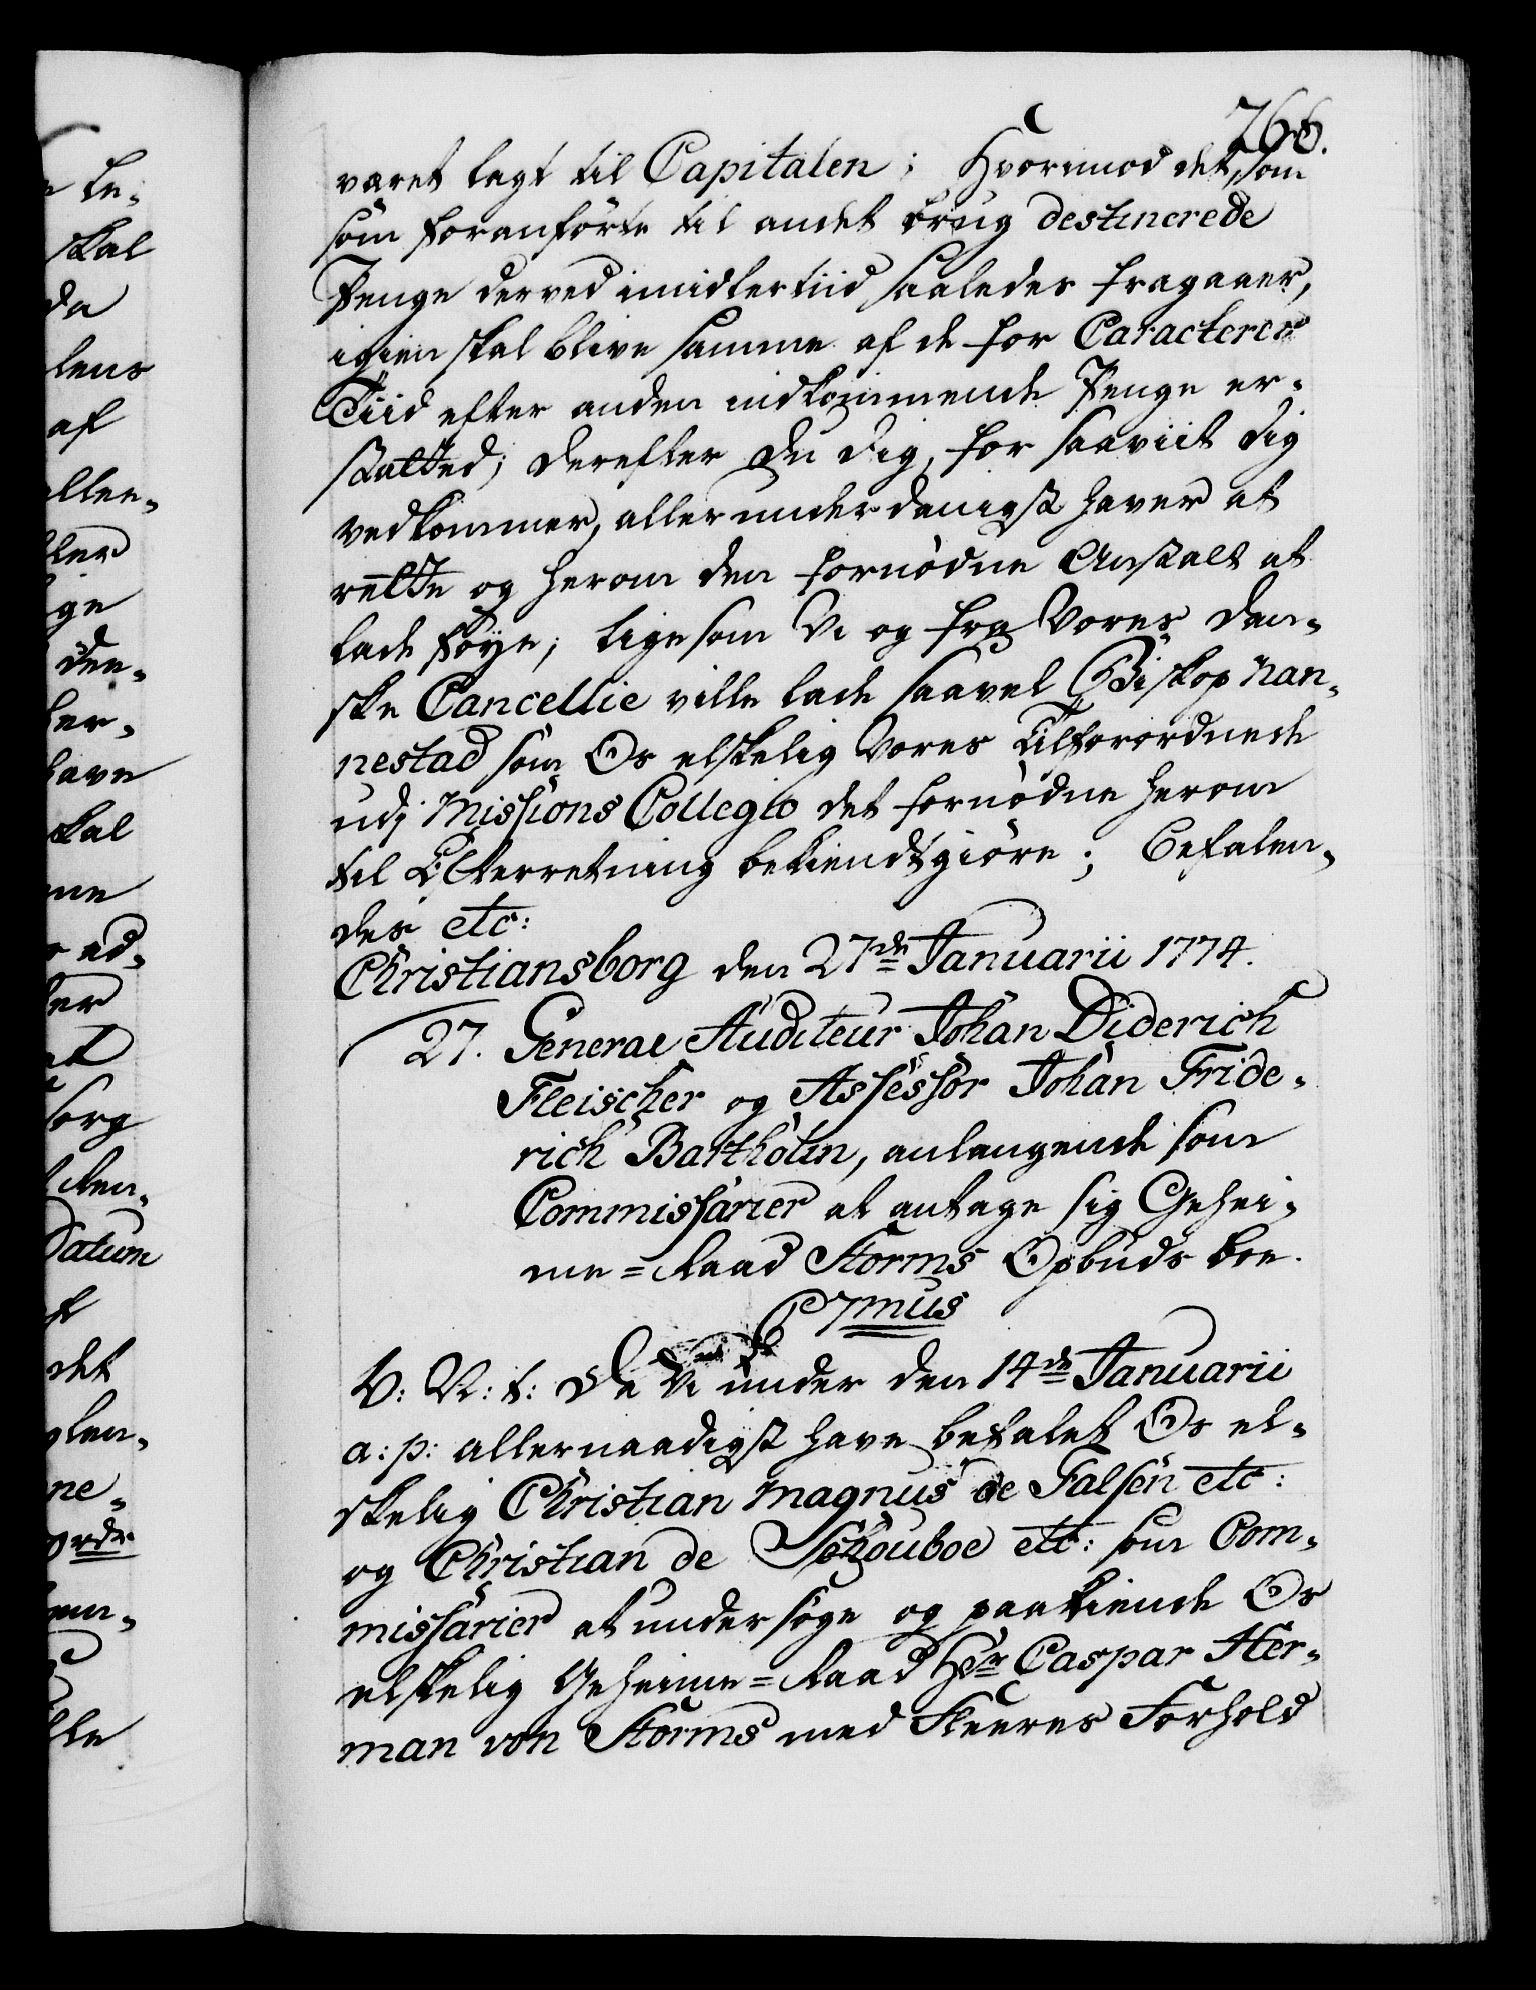 266.
været lagt til Capitalen; Hvorimod det, som
som foranførte til andet brug destinerede
Penge derved imidlertiid saaledes fragaaer,
igien skal blive samme af de for Caracterer
Tiid efter anden indkommende Penge er-
statted; derefter du dig, for saaviit dig
vedkommer, allerunderdanigst haver at
rette og herom den fornødne Anstalt at
lade føye; ligesom Vi og fra Vores Dan-
ske Cancellie ville lade saavel Biskop Nan-
nestad som Os elskelig Vores Tilforordnede
udj Missions Collegio det fornødne herom
til Efterretning bekiendtgiøre; Befalen-
des etc:
Christiansborg den 27de Januarii 1774.
27. General Auditeur Johan Diderich
Fleischer og Assessor Johan Fride-
rich Bartholin, anlangende som
Commissarier at antage sig Gehei-
me-Raad Storms Opbuds boe.
C 7mus
V: V: t: Da Vi under den 14de Januarii
a: p: allernaadigst have befalet Os el-
skelig Christian Magnus de Falsen etc:
og Christian de Schouboe etc: som Com-
missarier at undersøge og paakiende Os
elskelig Geheime-Raad Hr Caspar Her-
man von Storms med Fleeres Forhold